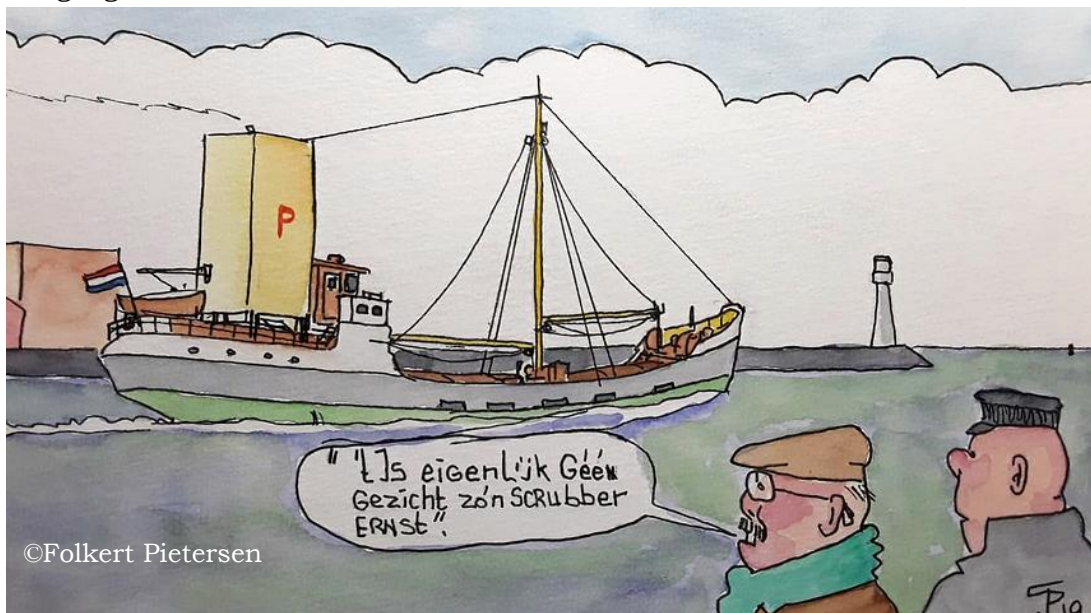 P
"'t Is eigenlijk Géén
Gezicht zó'n SCRubber
ERNSt".
©Folkert Pietersen